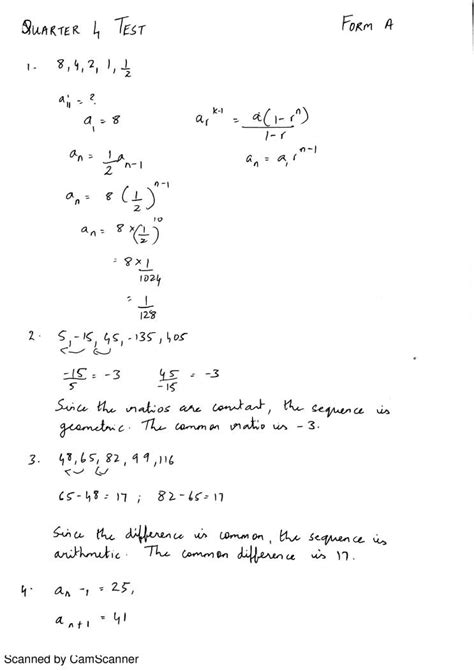 QUARTER 4 TEST
FORM A
1. 8, 4, 2, 1, 1/2
a₁₁ = ?
a₁ = 8
aᵣ^(k-1) = a(1-rⁿ)/(1-r)
aₙ = 1/2 aₙ₋₁
aₙ = a₁rⁿ⁻¹
aₙ = 8 (1/2)ⁿ⁻¹
aₙ = 8 × (1/2)¹⁰
= 8 × 1/1024
= 1/128
2. 5, -15, 45, -135, 405
-15/5 = -3 45/-15 = -3
Since the ratios are constant, the sequence is
geometric. The common ratio is -3.
3. 48, 65, 82, 99, 116
65-48 = 17 ; 82-65 = 17
Since the difference is common, the sequence is
arithmetic. The common difference is 17.
4. aₙ -1 = 25,
aₙ₊₁ = 41
Scanned by CamScanner